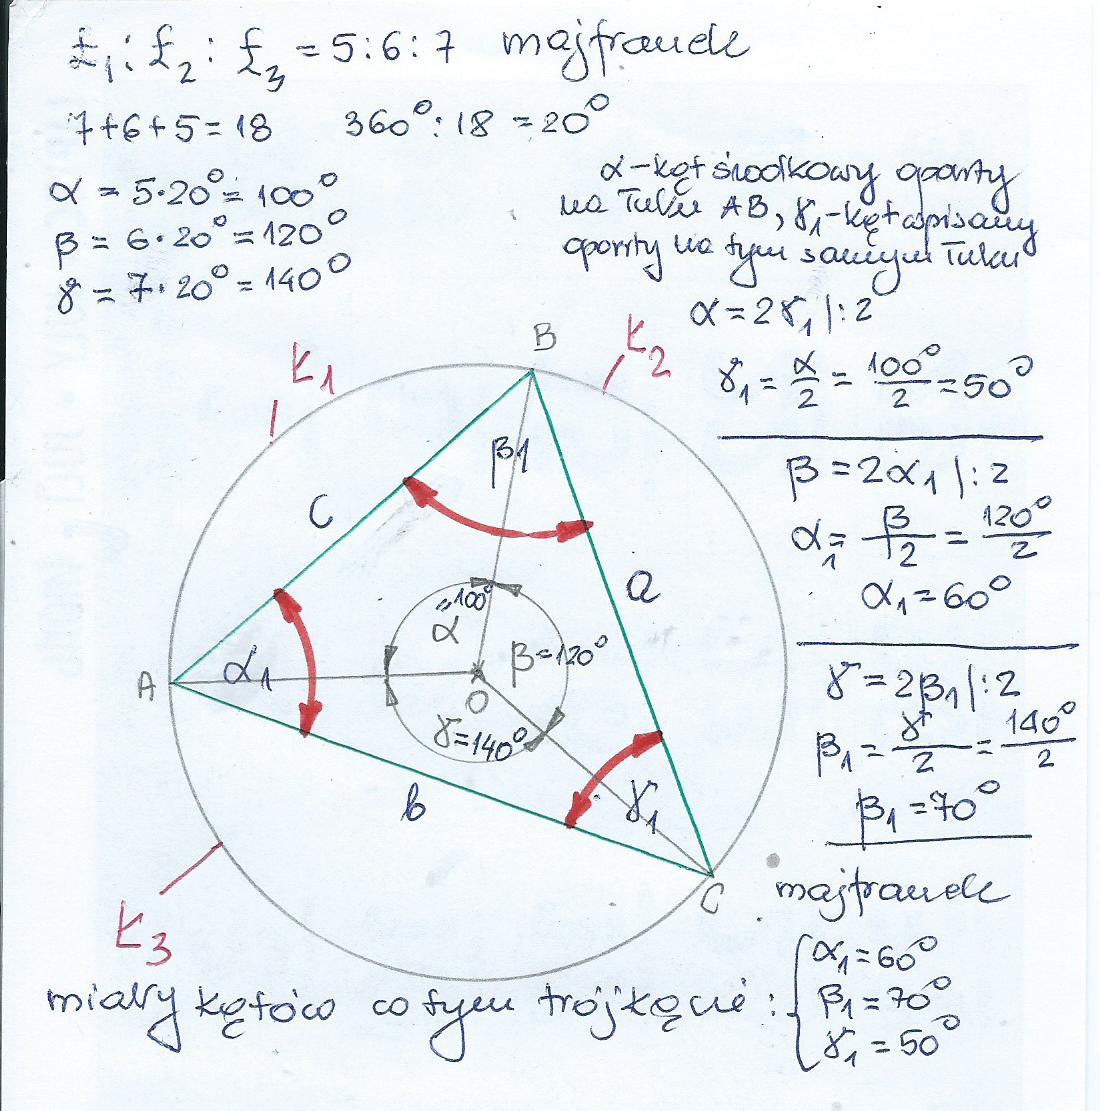 Ł₁ : Ł₂ : Ł₃ = 5 : 6 : 7 majfranek
7+6+5 = 18 360° : 18 = 20°
α = 5·20° = 100°
β = 6·20° = 120°
γ = 7·20° = 140°
α – kąt środkowy oparty
na łuku AB, γ₁ – kąt wpisany
oparty na tym samym łuku
α = 2γ₁ |:2
γ₁ = α/2 = 100°/2 = 50°
β = 2α₁ |:2
α₁ = β/2 = 120°/2
α₁ = 60°
γ = 2β₁ |:2
β₁ = γ/2 = 140°/2
β₁ = 70°
Ł1
B
Ł2
β1
c
a
α = 100°
β = 120°
A
α1
O
γ = 140°
b
γ1
C
Ł3
majfranek
miary kątów w tym trójkącie :
α₁ = 60°
β₁ = 70°
γ₁ = 50°